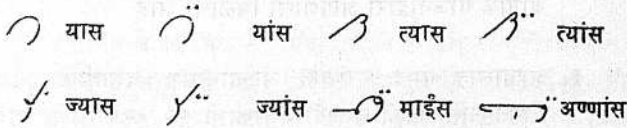 यास यांस त्यास त्यांस
ज्यास ज्यांस माईंस अण्णांस